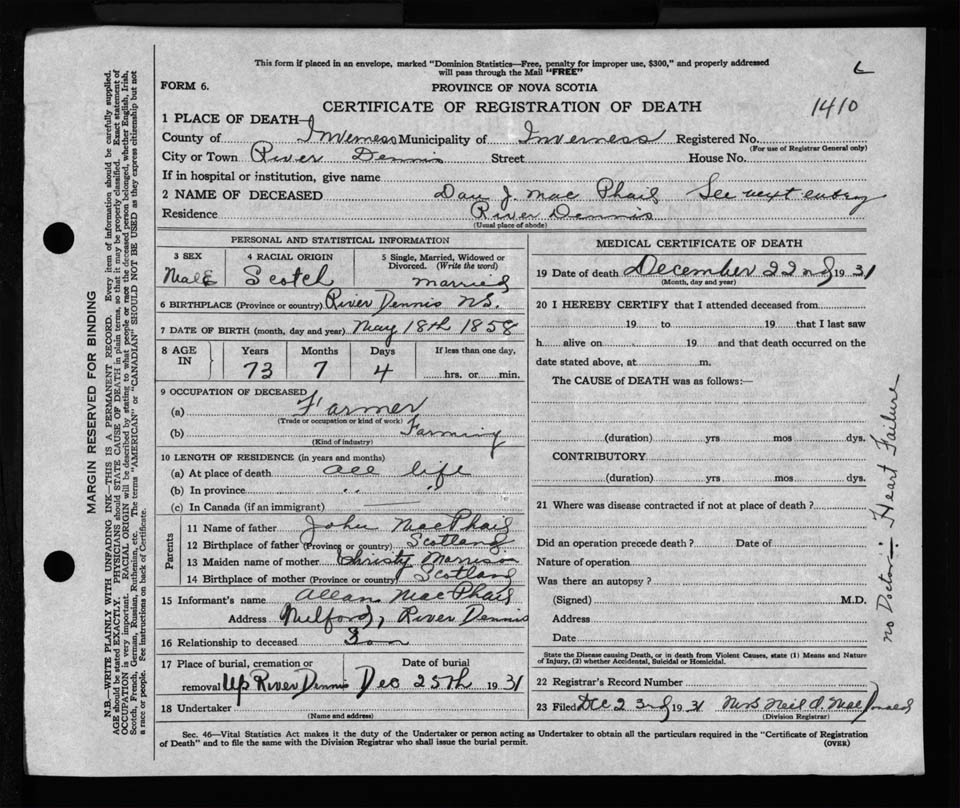 This form if placed in an envelope, marked "Dominion Statistics—Free, penalty for improper use, $300," and properly addressed
will pass through the Mail "FREE"
6
FORM 6.
PROVINCE OF NOVA SCOTIA
CERTIFICATE OF REGISTRATION OF DEATH
1410
1 PLACE OF DEATH—
County of Inverness Municipality of Inverness Registered No.
(For use of Registrar General only)
City or Town River Dennis Street House No.
If in hospital or institution, give name
2 NAME OF DECEASED Dan J. MacPhail See next entry
Residence River Dennis
(Usual place of abode)
PERSONAL AND STATISTICAL INFORMATION
3 SEX 4 RACIAL ORIGIN 5 Single, Married, Widowed or
Divorced. (Write the word)
Male Scotch married
6 BIRTHPLACE (Province or country) River Dennis N.S.
7 DATE OF BIRTH (month, day and year) May 18th 1858
8 AGE IN Years Months Days If less than one day,
73 7 4 hrs. or min.
9 OCCUPATION OF DECEASED
(a) Farmer
(Trade or occupation or kind of work)
(b) Farming
(Kind of industry)
10 LENGTH OF RESIDENCE (in years and months)
(a) At place of death all life
(b) In province " "
(c) In Canada (if an immigrant)
Parents
11 Name of father John MacPhail
12 Birthplace of father (Province or country) Scotland
13 Maiden name of mother Christy Morrison
14 Birthplace of mother (Province or country) Scotland
15 Informant's name Allan MacPhail
Address Milford, River Dennis
16 Relationship to deceased Son
17 Place of burial, cremation or Date of burial
removal Up River Dennis Dec 25th 1931
18 Undertaker
(Name and address)
MEDICAL CERTIFICATE OF DEATH
19 Date of death December 22nd 1931
(Month, day and year)
20 I HEREBY CERTIFY that I attended deceased from
19 to 19 that I last saw
h alive on 19 and that death occurred on the
date stated above, at m.
The CAUSE of DEATH was as follows:—
(duration) yrs mos dys.
CONTRIBUTORY
(duration) yrs mos dys.
21 Where was disease contracted if not at place of death?
Did an operation precede death? Date of
Nature of operation
Was there an autopsy?
(Signed) M.D.
Address
Date
State the Disease causing Death, or in death from Violent Causes, state (1) Means and Nature
of Injury, (2) whether Accidental, Suicidal or Homicidal.
22 Registrar's Record Number
23 Filed Dec 23rd 1931 Mrs Neil A. MacDonald
(Division Registrar)
no Doctor: Heart Failure
Sec. 46—Vital Statistics Act makes it the duty of the Undertaker or person acting as Undertaker to obtain all the particulars required in the "Certificate of Registration
of Death" and to file the same with the Division Registrar who shall issue the burial permit.
(OVER)
MARGIN RESERVED FOR BINDING
N.B.—WRITE PLAINLY WITH UNFADING INK—THIS IS A PERMANENT RECORD. Every item of information should be carefully supplied.
AGE should be stated EXACTLY. PHYSICIANS should STATE CAUSE OF DEATH in plain terms, so that it may be properly classified. Exact statement of
OCCUPATION is very important. RACIAL ORIGIN will be described by stating to what people or race the deceased person belonged, whether English, Irish,
Scotch, French, German, Russian, Ruthenian, etc. The terms "AMERICAN" or "CANADIAN" SHOULD NOT BE USED as they express citizenship but not
a race or people. See instructions on back of Certificate.